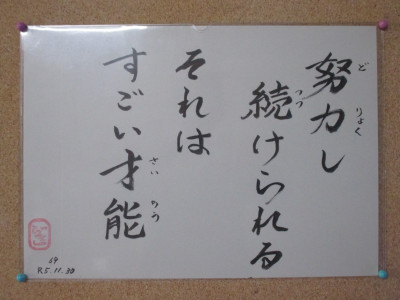 努力し
続けられる
それは
すごい才能
どりょく
つづ
さいのう
R5.11.30